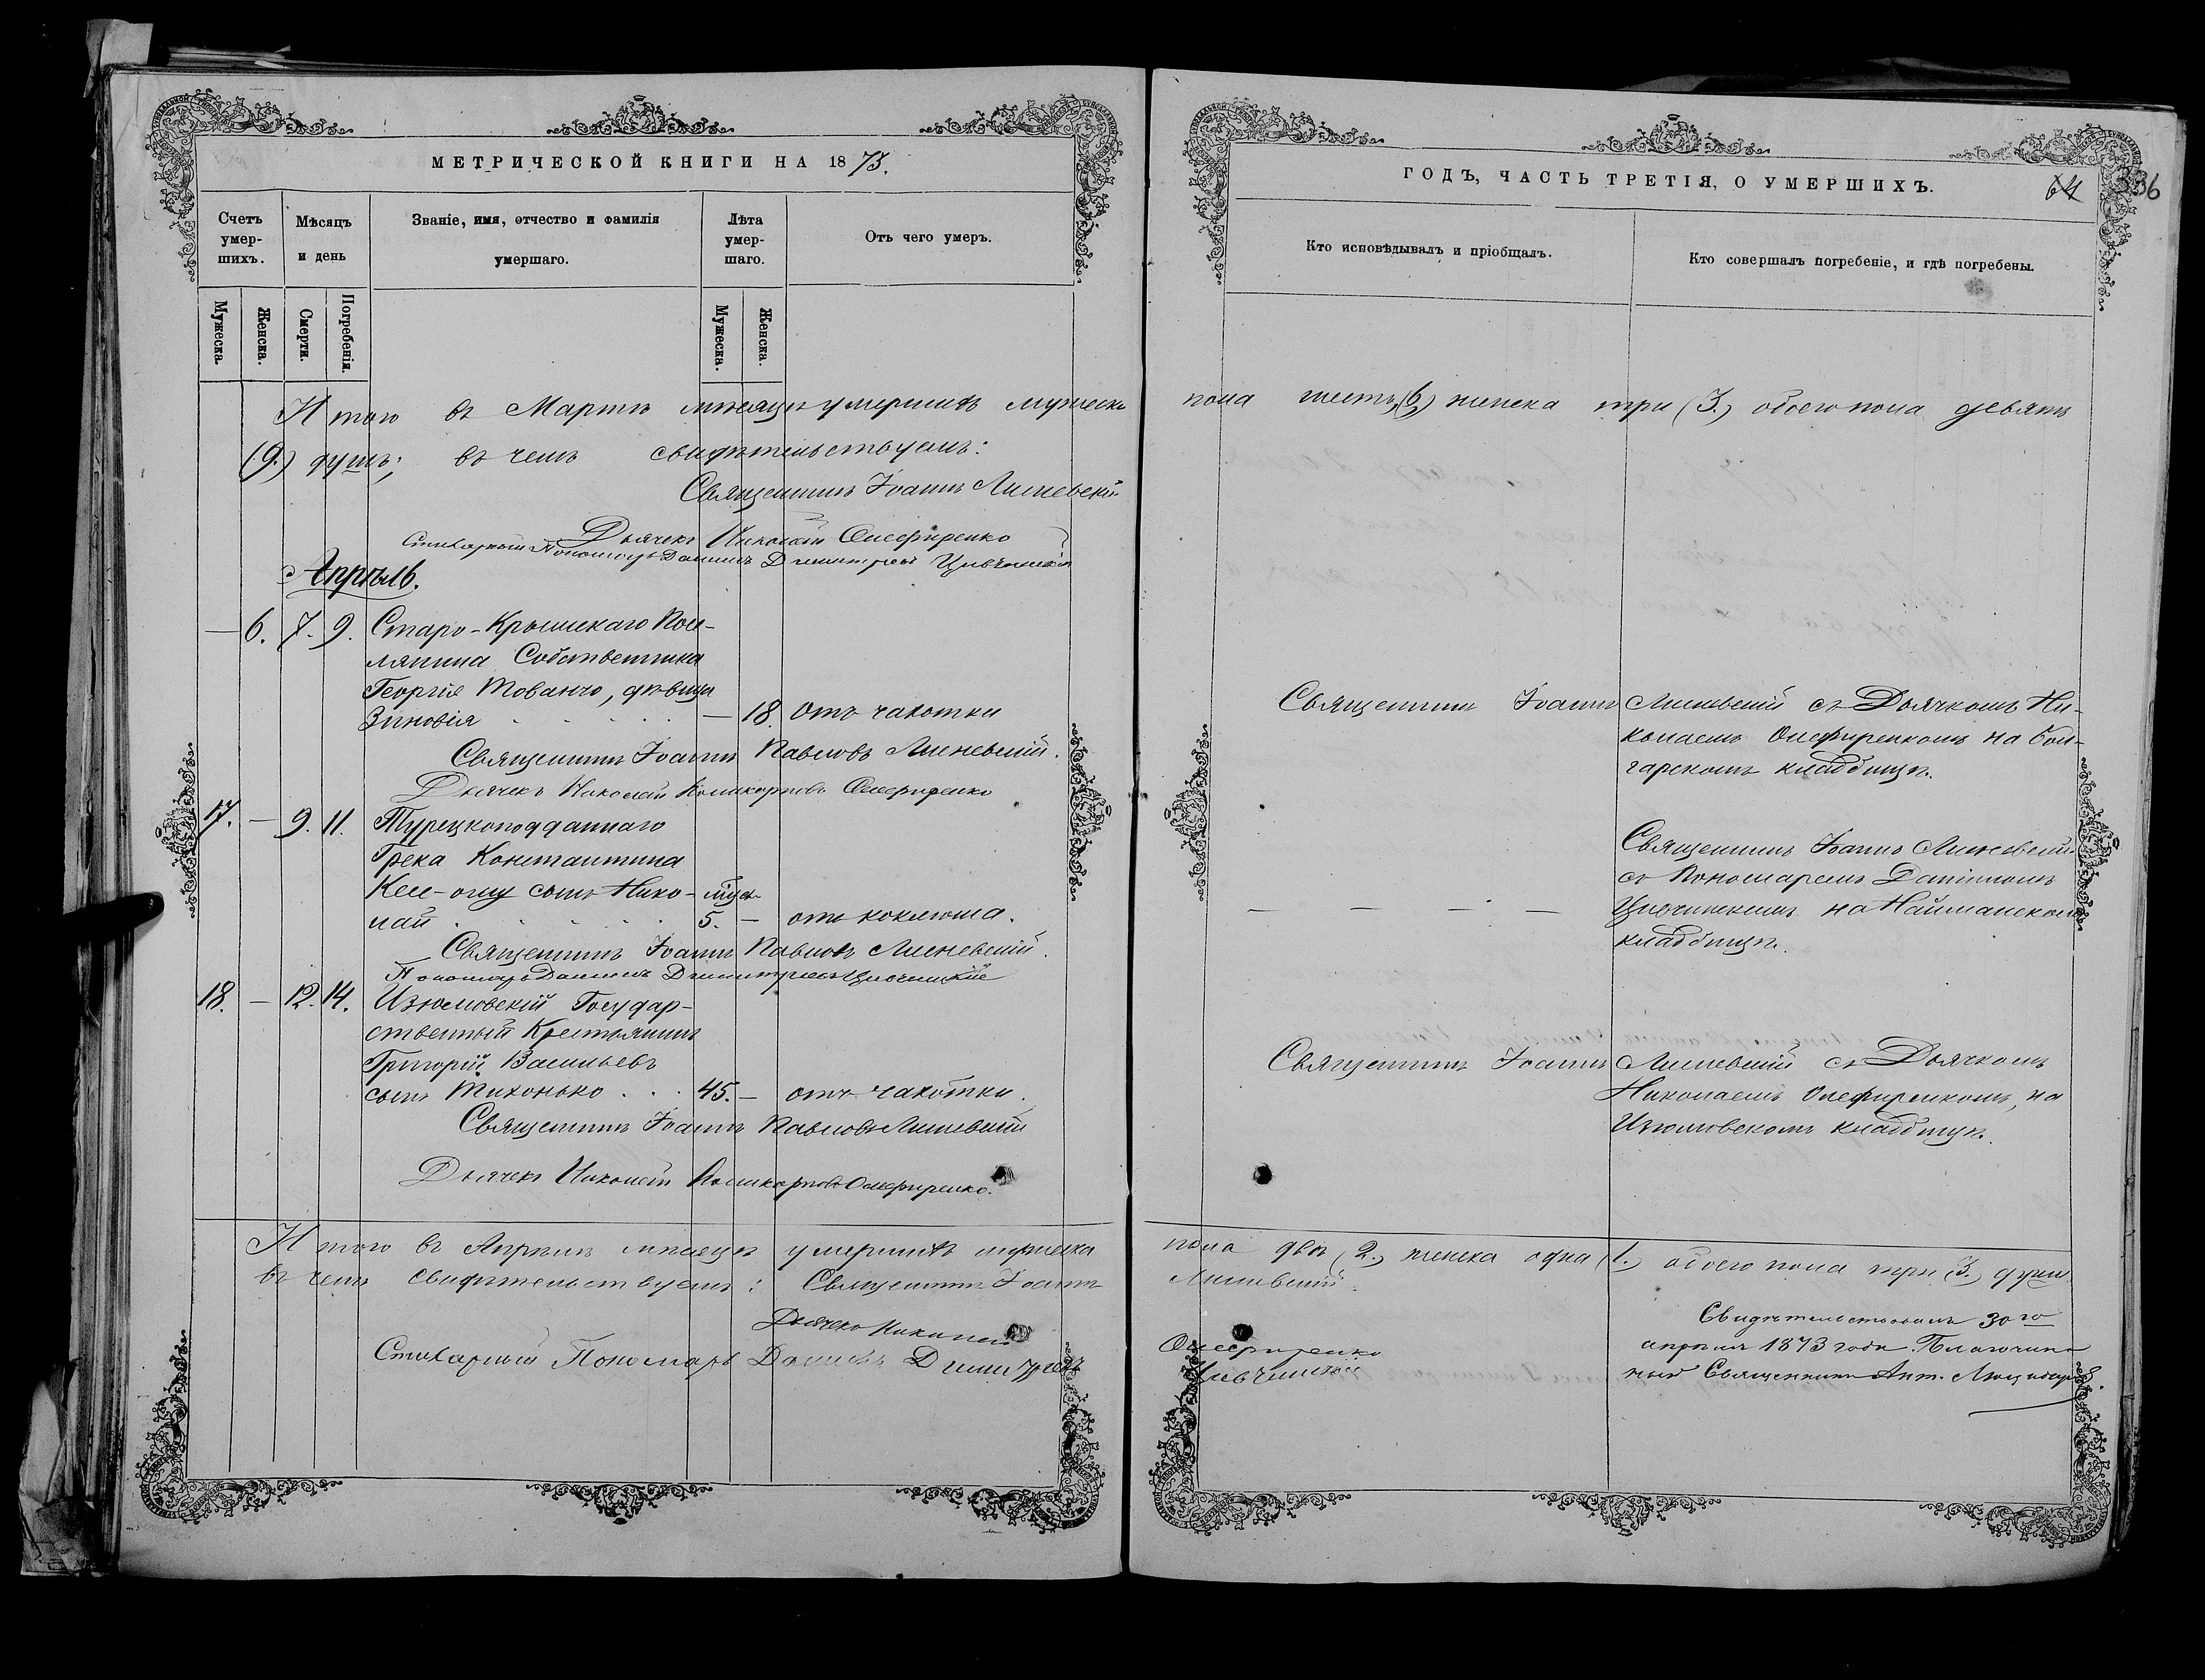 МЕТРИЧЕСКОЙ КНИГИ НА 1873.
Счетъ умер-шихъ.
Мѣсяцъ и день
Званіе, имя, отчество и фамилія умершаго.
Лѣта умер-шаго.
Отъ чего умеръ.
Мужеска.
Женска.
Смерти.
Погребенія.
Мужеска.
Женска.
Итого въ Мартѣ мѣсяцѣ умершихъ мужеска
(9.) душъ; въ чемъ свидѣтельствуемъ:
Священникъ Іоаннъ Линевскій
Дьячекъ Николай Олефиренко
Стихарный Пономарь Даніилъ Димитріевъ
Апрѣль.
— 6. 7. 9. Старо-Крымскаго Посе-
лянина Собственника
Георгія Тованчо, дѣвица
Зиновія — 18 Отъ чахотки
Священникъ Іоаннъ Павловъ Линевскій.
Дьячекъ Николай Поликарповъ Олефиренко
17. — 9. 11. Турецкоподданнаго
Грека Константина
Кел-оглу сынъ Нико-
лай 5. — отъ коклюша.
Священникъ Іоаннъ Павловъ Линевскій.
Пономарь Даніилъ Димитріевъ
18. — 12. 14. Изюмовскій Государ-
ственный Крестьянинъ
Григорій Васильевъ
сынъ Тихонько 45. — отъ чахотки.
Священникъ Іоаннъ Павловъ Линевскій
Дьячекъ Николай Поликарповъ Олефиренко.
Итого въ Апрѣлѣ мѣсяцѣ умершихъ мужеска
въ чемъ свидѣтельствуемъ: Священникъ Іоаннъ
Дьячекъ Николай
Стихарный Пономарь Даніилъ Димитріевъ
ГОДЪ, ЧАСТЬ ТРЕТІЯ, О УМЕРШИХЪ.
64
336
Кто исповѣдывалъ и пріобщалъ.
Кто совершалъ погребеніе, и гдѣ погребены.
пола шесть, (6) женска три (3.) обоего пола девять
Священникъ Іоаннъ Линевскій съ Дьячкомъ Ни-
колаемъ Олефиренкомъ на бол-
гарскомъ кладбищѣ.
Священникъ Іоаннъ Линевскій
съ Пономаремъ Даніиломъ
на Найманскомъ
кладбищѣ.
Священникъ Іоаннъ Линевскій съ Дьячкомъ
Николаемъ Олефиренкомъ, на
Изюмовскомъ кладбищѣ.
пола два (2.) женска одна (1.) обоего пола три (3.) души
Линевскій.
Олефиренко
Свидѣтельствовалъ 30го
апрѣля 1873 года. Благочин-
ный Священникъ Ант.